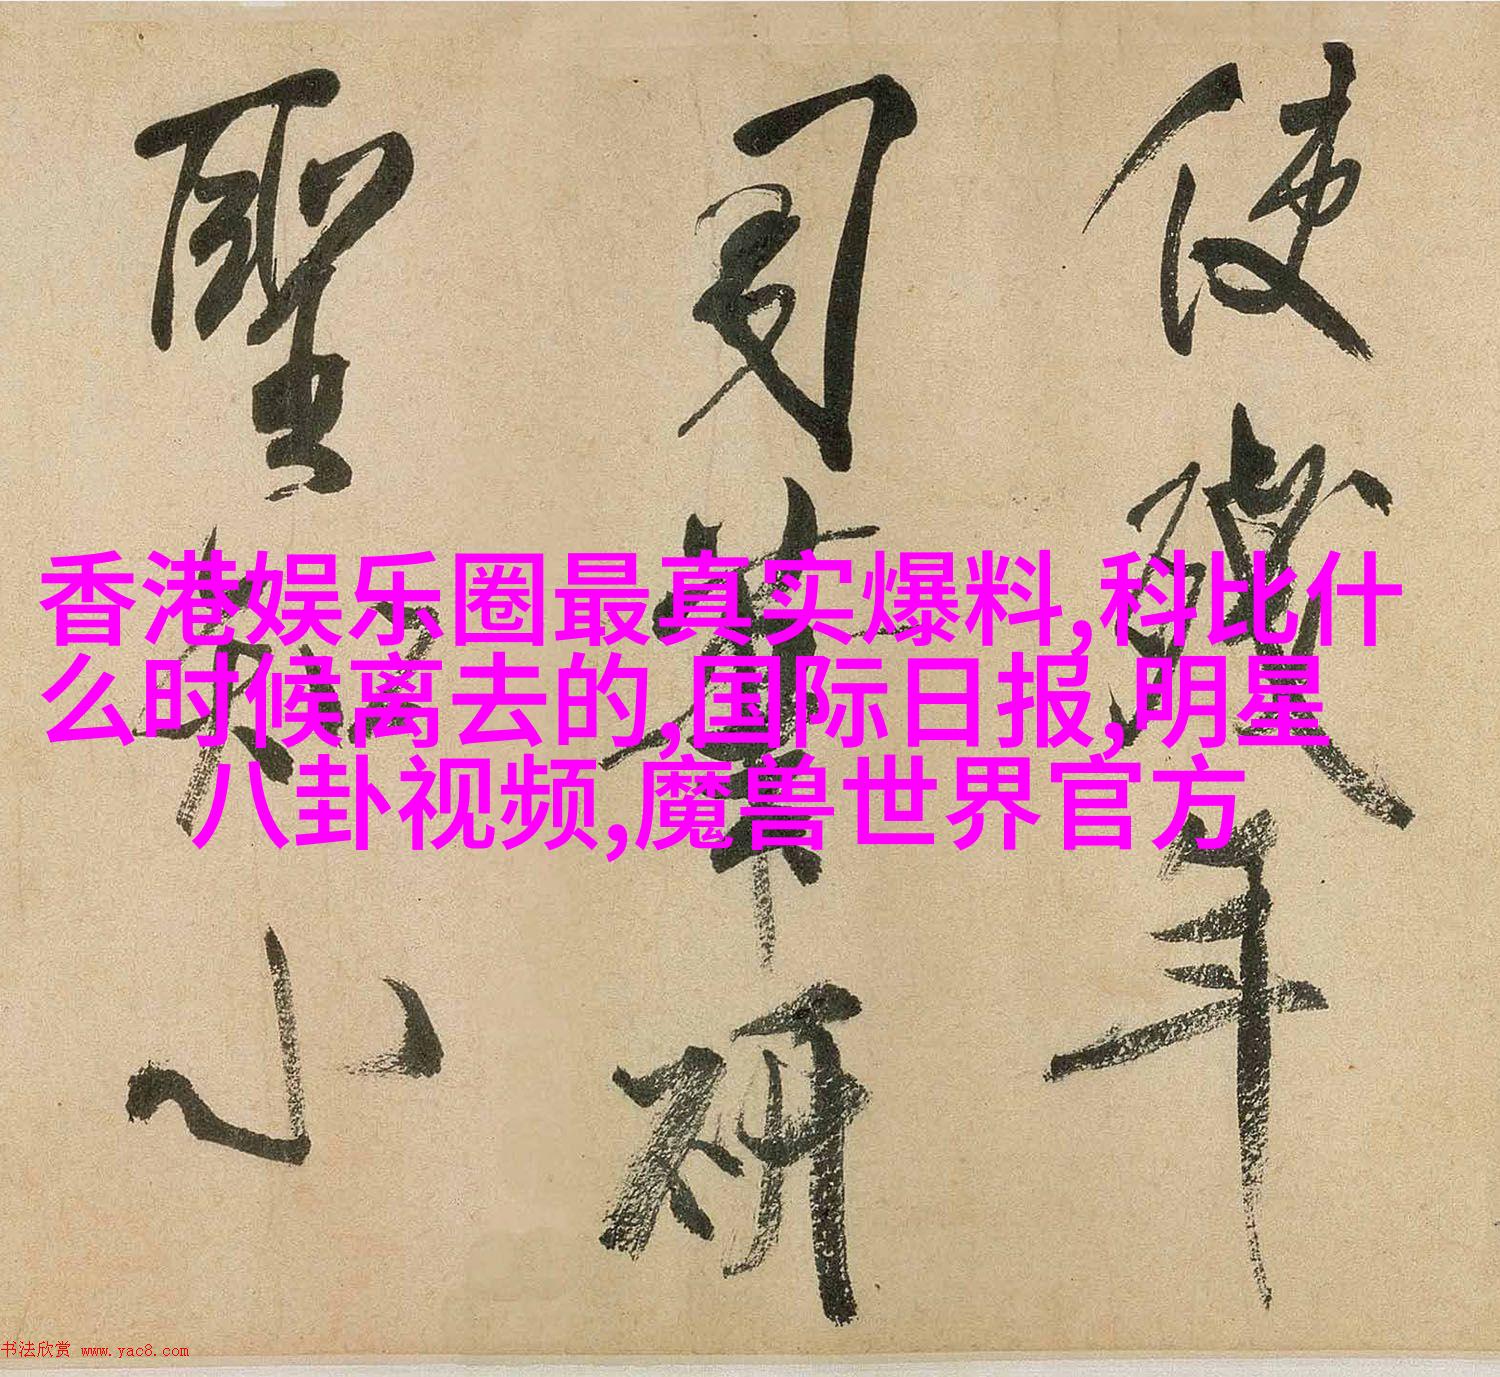 香港娱乐圈最真实爆料,科比什
么时候离去的,国际日报,明星
八卦视频,魔兽世界官方
使年
司筆研
聖小
书法欣赏 www.yac8.com